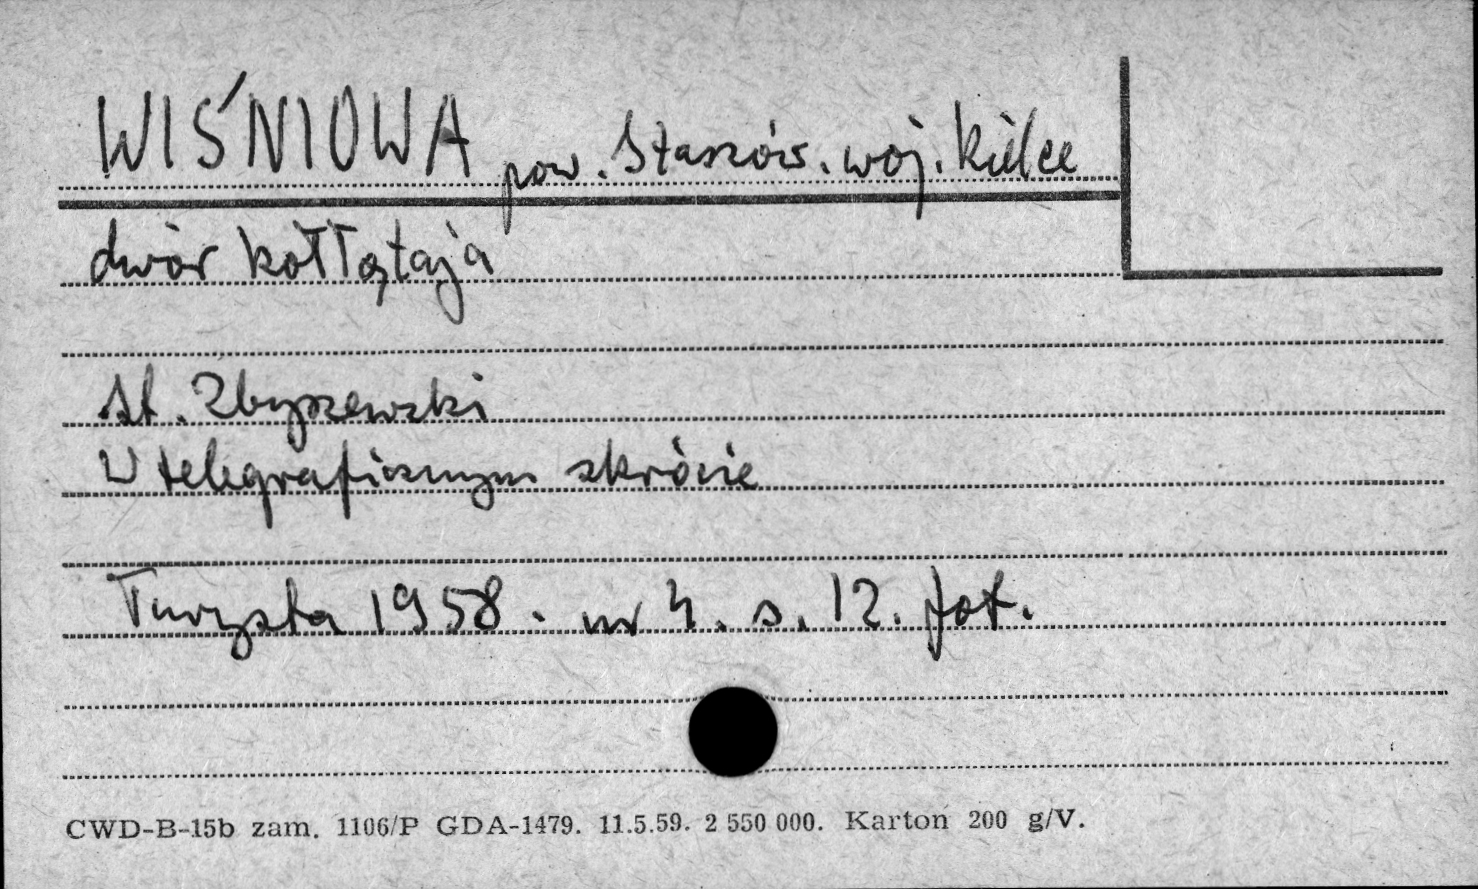 WIŚNIOWA pow. Staszów. woj. Kielce
dwór Kołłątaja
St. Zbyszewski
W telegraficznym skrócie
Turysta 1958. nr 4. s. 12. fot.
CWD-B-15b zam. 1106/P GDA-1479. 11.5.59. 2 550 000. Karton 200 g/V.